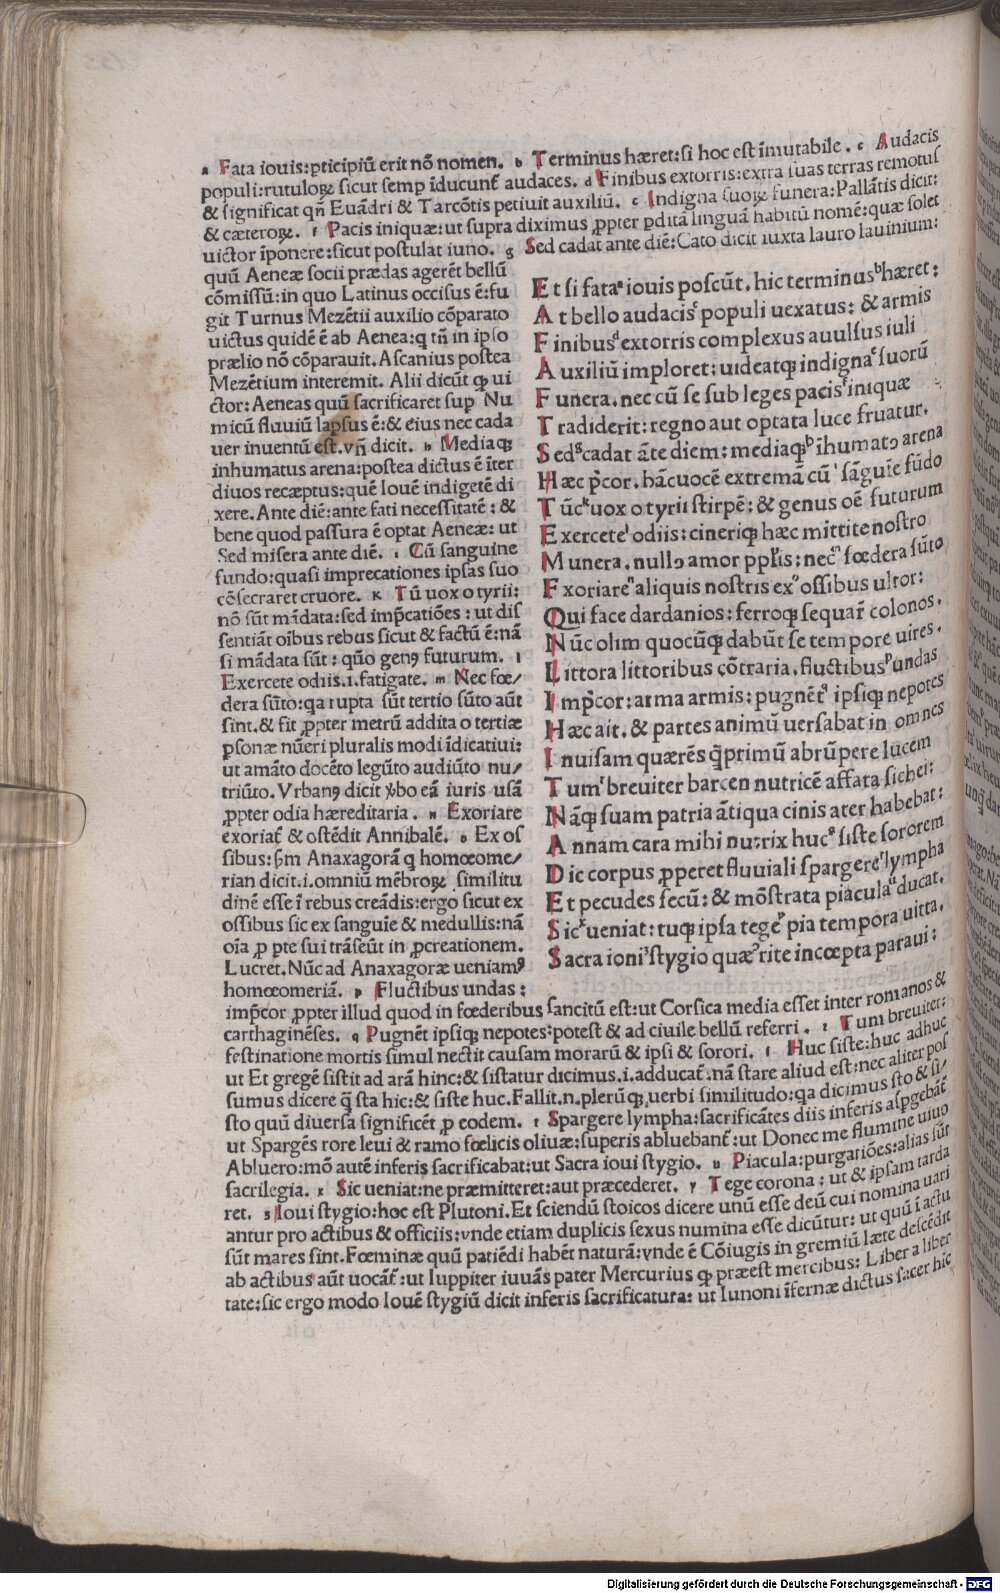 a Fata iouis:pticipiū erit nō nomen. b Terminus hæret:si hoc est īmutabile. c Audacis
populi:rutuloꝝ sicut semp īducunt̄ audaces. d Finibus extorris:extra suas terras remotus
& significat qn̄ Euādri & Tarcōtis petiuit auxiliū. e Indigna suoꝝ funera:Pallātis dicit:
& cæteroꝝ. f Pacis iniquæ:ut supra diximus ꝓpter ꝑditā linguā habitū nomē:quæ solet
uictor īponere:sicut postulat iuno. g Sed cadat ante diē:Cato dicit iuxta lauro lauinium:
quū Aeneæ socii prædas agerēt bellū
cōmissū:in quo Latinus occisus ē:fu
git Turnus Mezētii auxilio cōparato
uictus quidē ē ab Aenea:q tn̄ in ipso
prælio nō cōparauit. Ascanius postea
Mezētium interemit. Alii dicūt ꝙ ui
ctor:Aeneas quū sacrificaret sup Nu
micū fluuiū lapsus ē:& eius nec cada
uer inuentū est.vn̄ dicit. h Mediaqꝫ
inhumatus arena:postea dictus ē īter
diuos recæptus:quē Iouē indigetē di
xere. Ante diē:ante fati necessitatē: &
bene quod passura ē optat Aeneæ: ut
Sed misera ante diē. i Cū sanguine
fundo:quasi imprecationes ipsas suo
cōsecraret cruore. k Tū uox o tyrii:
nō sūt mādata:sed imp̄catiōes : ut dis
sentiāt oībus rebus sicut & factū ē:nā
si mādata sūt : quo genꝰ futurum. l
Exercete odiis.i.fatigate. m Nec fœ/
dera sūto:qa rupta sūt tertio sūto aūt
sint.& fit ꝓpter metrū addita o tertiæ
ꝑsonæ nūeri pluralis modi īdicatiui:
ut amāto docēto legūto audiūto nu/
triūto. Vrbanꝰ dicit ꝟbo eā iuris usā
ꝓpter odia hæreditaria. n Exoriare
exoriat̄ & ostēdit Annibalē. o Ex os
sibus:ſm Anaxagorā q homœome/
rian dicit.i.omniū mēbroꝝ similitu
dinē esse ī rebus creādis:ergo sicut ex
ossibus sic ex sanguīe & medullis:nā
oīa ꝓ pte sui trāseūt in ꝓcreationem.
Lucret. Nūc ad Anaxagoræ ueniamꝰ
homœomeriā. p Fluctibus undas :
Et si fataᵃ iouis poscūt. hic terminusᵇ hæret:
At bello audacisᶜ populi uexatus: & armis
Finibusᵈ extorris complexus auulsus iuli
Auxiliū imploret: uideatqꝫ indignaᵉ suorū
Funera. nec cū se sub leges pacisᶠ iniquæ
Tradiderit: regno aut optata luce fruatur.
Sedᵍ cadat āte diem: mediaqꝫʰ īhumatꝰ arena
Hæc p̄cor. hāc uocē extremā cūⁱ sāguīe fūdo
Tūcᵏ uox o tyrii stirpē: & genus oē futurum
Exerceteˡ odiis: cineriqꝫ hæc mittite nostro
Munera. nullꝰ amor pplis: necᵐ fœdera sūto
Exoriareⁿ aliquis nostris exᵒ ossibus ultor:
Qui face dardanios: ferroqꝫ sequar̄ colonos.
Nūc olim quocūqꝫ dabūt se tempore uires.
Littora littoribus cōtraria. fluctibusᵖ undas
Imp̄cor: arma armis: pugnētᑫ ipsiqꝫ nepotes
Hæc ait. & partes animū uersabat in omnes
Inuisam quærēs q̄primū abrūpere lucem
Tumʳ breuiter barcen nutricē affata sichei:
Nāqꝫ suam patria ātiqua cinis ater habebat:
Annam cara mihi nutrix hucˢ siste sororem
Dic corpus ꝓperet fluuiali spargereᵗ lympha
Et pecudes secū: & mōstrata piaculaᵘ ducat.
Sicˣ ueniat: tuqꝫ ipsa tegeʸ pia tempora uitta.
Sacra iouiᶻ stygio quæ rite incœpta paraui:
imp̄cor ꝓpter illud quod in fœderibus sancitū est:ut Corsica media esset inter romanos &
carthaginēses. q Pugnēt ipsiqꝫ nepotes:potest & ad ciuile bellū referri. r Tum breuiter:
festinatione mortis simul nectit causam morarū & ipsi & sorori. s Huc siste:huc adhuc
ut Et gregē sistit ad arā hinc:& sistatur dicimus.i.adducat̄.nā stare aliud est:nec aliter pos
sumus dicere q̄ sta hic:& siste huc. Fallit.n.plerūqꝫ.uerbi similitudo:qa dicimus sto & si/
sto quū diuersa significēt ꝓ eodem. t Spargere lympha:sacrificātes diis inferis aspgebāt̄
ut Spargēs rore leui & ramo fœlicis oliuæ:superis abluebant̄:ut Donec me flumine uiuo
Abluero:mō autē inferis sacrificabat:ut Sacra ioui stygio. u Piacula:purgatiōes:alias sūt
sacrilegia. x Sic ueniat:ne præmitteret:aut præcederet. y Tege corona : ut & ipsam tarda
ret. z Ioui stygio:hoc est Plutoni.Et sciendū stoicos dicere unū esse deū cui nomina uari
antur pro actibus & officiis:vnde etiam duplicis sexus numina esse dicūtur: ut quū ī actu
sūt mares sint.Fœminæ quū patiēdi habēt naturā:vnde ē Cōiugis in gremiū læte descēdit
ab actibus aūt uocāt̄ :ut Iuppiter iuuās pater Mercurius ꝙ præest mercibus: Liber a liber
tate:sic ergo modo Iouē stygiū dicit inferis sacrificatura: ut Iunoni īfernæ dictus sacer hic
Digitalisierung gefördert durch die Deutsche Forschungsgemeinschaft - DFG